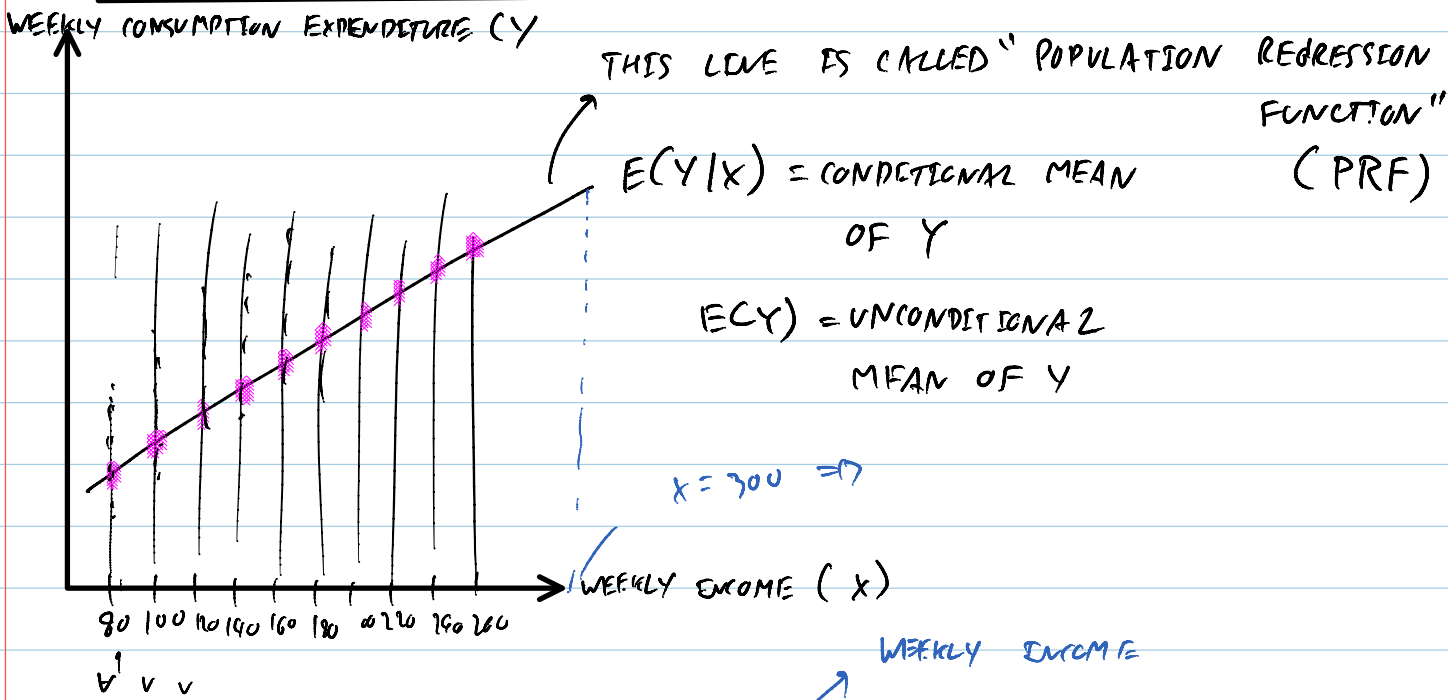 WEEKLY CONSUMPTION EXPENDITURE (Y
THIS LINE IS CALLED "POPULATION REGRESSION
FUNCTION"
E(Y|X) = CONDITIONAL MEAN (PRF)
OF Y
E(Y) = UNCONDITIONAL
MEAN OF Y
X = 300 =>
WEEKLY INCOME (X)
80 100 120 140 160 180 220 240 260
WEEKLY INCOME